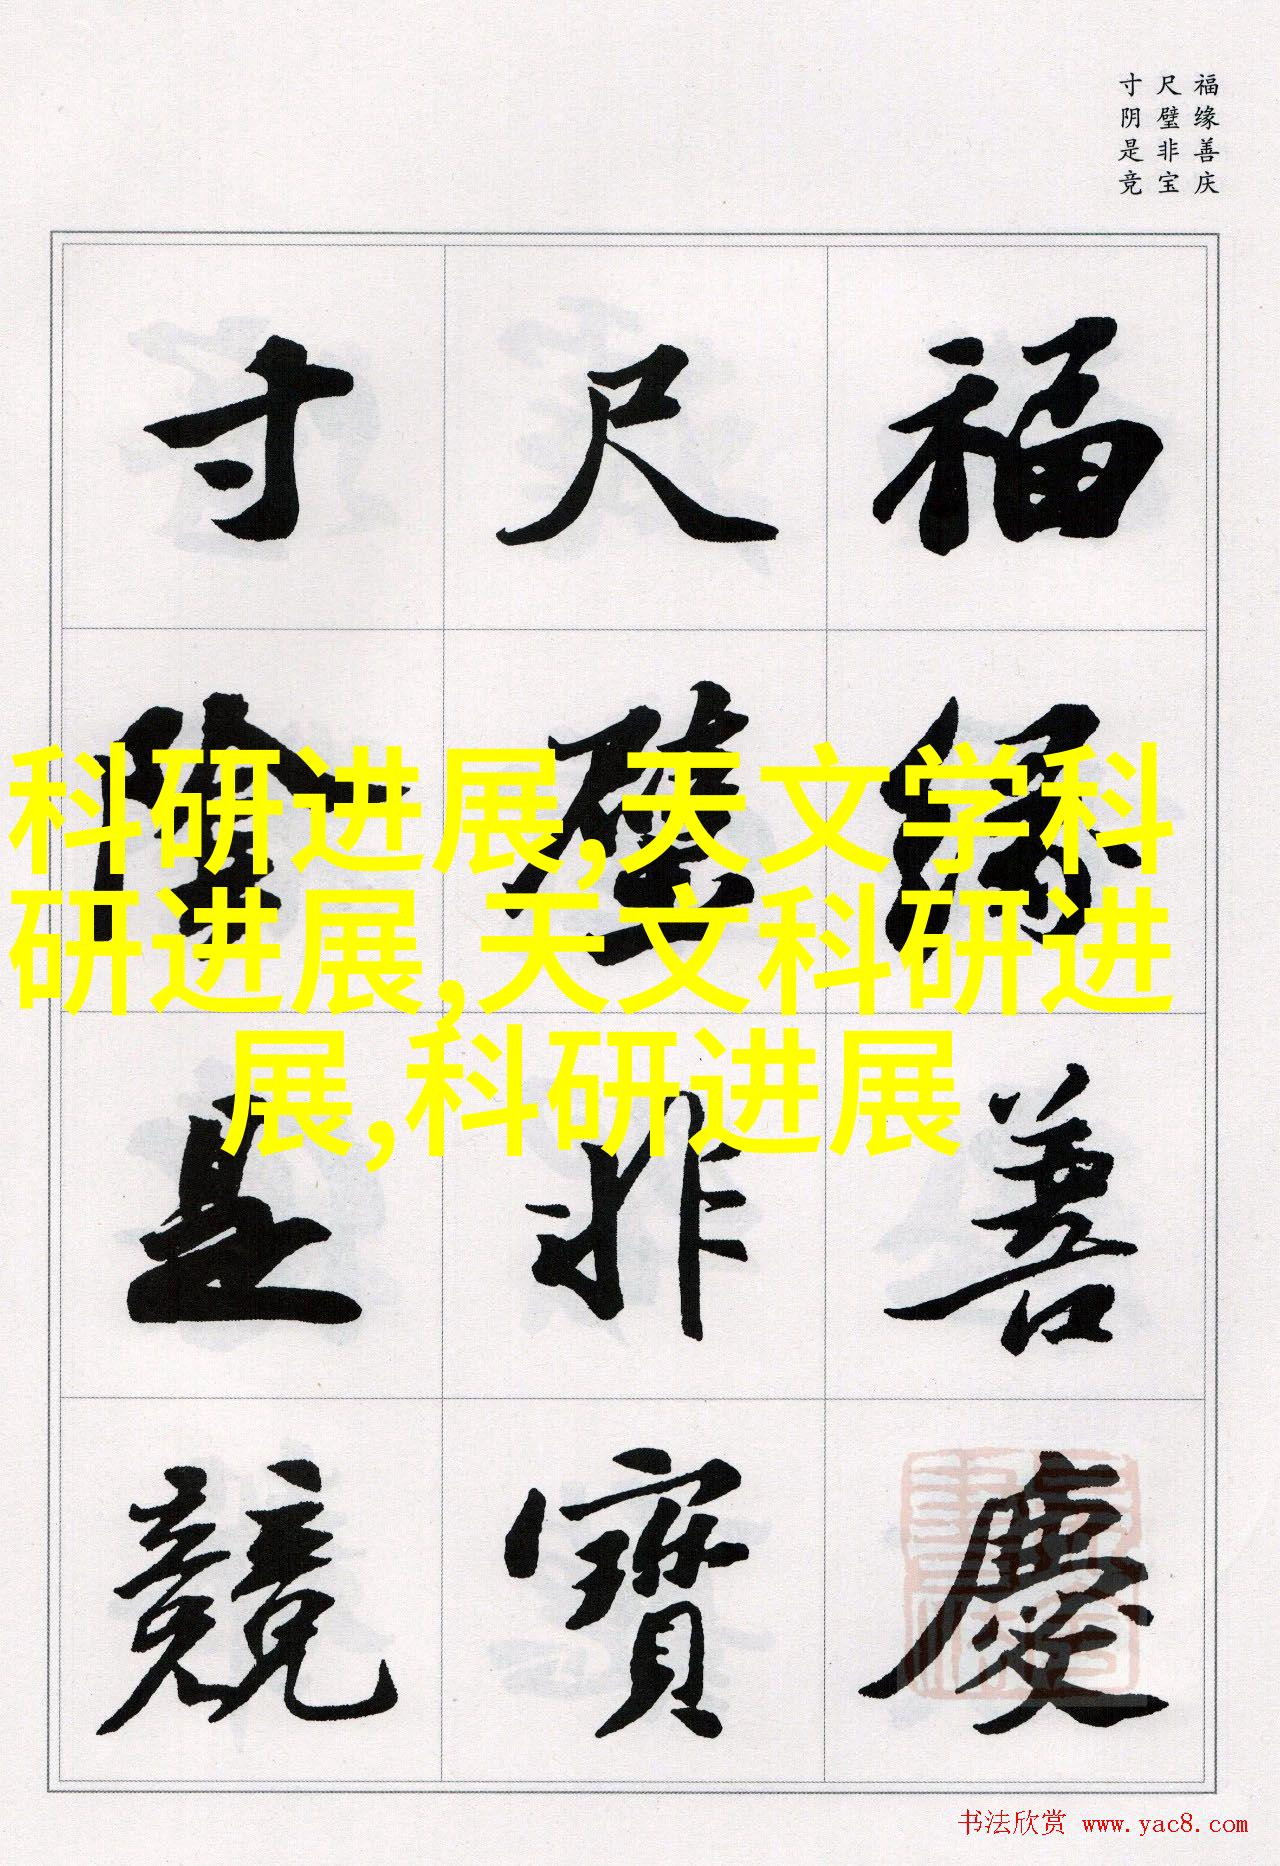 福缘善庆
尺璧非宝
寸阴是竞
福緣善慶
尺璧非寶
寸陰是競
科研进展,天文学科
研进展,天文科研进
展,科研进展
书法欣赏 www.yac8.com